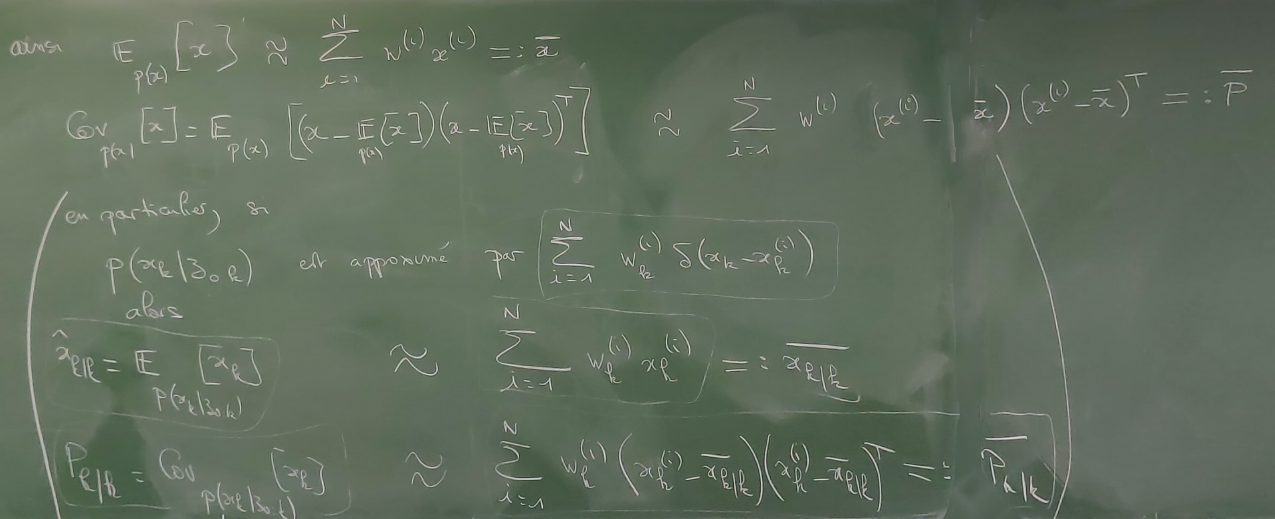 ainsi 𝔼_{p(x)} [x] ≈ ∑_{i=1}^{N} w^{(i)} x^{(i)} =: x̄
Cov_{p(x)} [x] = 𝔼_{p(x)} [(x − 𝔼_{p(x)}[x])(x − 𝔼_{p(x)}[x])^T] ≈ ∑_{i=1}^{N} w^{(i)} (x^{(i)} − x̄)(x^{(i)} − x̄)^T =: P̄
(en particulier, si
p(x_k|z_{0:k}) est approximé par ∑_{i=1}^{N} w_k^{(i)} δ(x_k − x_k^{(i)})
alors
x̂_{k|k} = 𝔼_{p(x_k|z_{0:k})} [x_k] ≈ ∑_{i=1}^{N} w_k^{(i)} x_k^{(i)} =: \overline{x_{k|k}}
P_{k|k} = Cov_{p(x_k|z_{0:k})} [x_k] ≈ ∑_{i=1}^{N} w_k^{(i)} (x_k^{(i)} − \overline{x_{k|k}})(x_k^{(i)} − \overline{x_{k|k}})^T =: \overline{P_{k|k}})